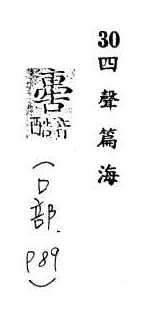 30四聲篇海
音酷
(口部 P89)